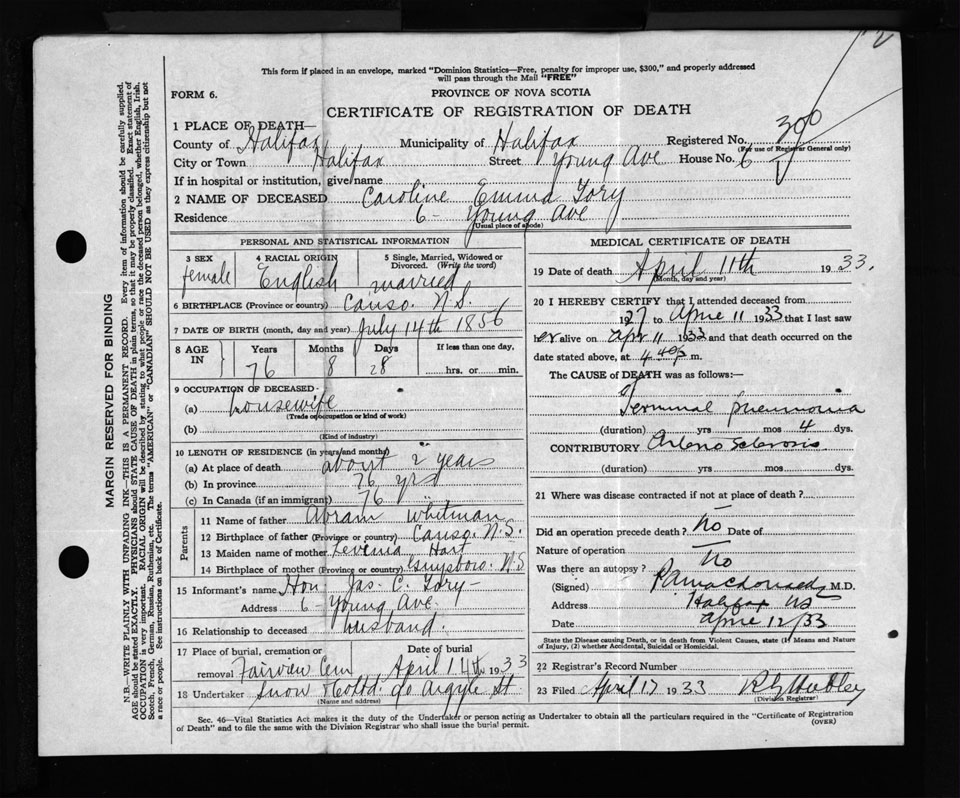 2
This form if placed in an envelope, marked "Dominion Statistics—Free, penalty for improper use, $300," and properly addressed
will pass through the Mail "FREE"
FORM 6.
PROVINCE OF NOVA SCOTIA
CERTIFICATE OF REGISTRATION OF DEATH
1 PLACE OF DEATH—
County of Halifax Municipality of Halifax Registered No. 300
(For use of Registrar General only)
City or Town Halifax Street Young Ave House No. 6
If in hospital or institution, give name
2 NAME OF DECEASED Caroline Emma Tory
Residence 6- Young Ave
(Usual place of abode)
PERSONAL AND STATISTICAL INFORMATION
3 SEX 4 RACIAL ORIGIN 5 Single, Married, Widowed or
Divorced. (Write the word)
female English married
6 BIRTHPLACE (Province or country) Canso. N.S.
7 DATE OF BIRTH (month, day and year) July 14th 1856
8 AGE IN Years Months Days If less than one day,
76 8 28 hrs. or min.
9 OCCUPATION OF DECEASED
(a) housewife
(Trade occupation or kind of work)
(b)
(Kind of industry)
10 LENGTH OF RESIDENCE (in years and months)
(a) At place of death about 2 years
(b) In province 76 yrs
(c) In Canada (if an immigrant) 76
Parents
11 Name of father Abram Whitman
12 Birthplace of father (Province or country) Canso. N.S.
13 Maiden name of mother Levenia Hart
14 Birthplace of mother (Province or country) Guysboro. N.S
15 Informant's name Hon Jas. C. Tory-
Address 6- Young Ave.
16 Relationship to deceased husband.
17 Place of burial, cremation or Date of burial
removal Fairview Cem April 14th 1933
18 Undertaker Snow & Co Ltd. 90 Argyle St.
(Name and address)
MEDICAL CERTIFICATE OF DEATH
19 Date of death April 11th 1933.
(Month, day and year)
20 I HEREBY CERTIFY that I attended deceased from
1927 to April 11 1933 that I last saw
her alive on Apr 11 1933 and that death occurred on the
date stated above, at 4.40 p m.
The CAUSE of DEATH was as follows:—
Terminal pneumonia
(duration) yrs mos 4 dys.
CONTRIBUTORY Arterio Sclerosis
(duration) yrs. mos. dys.
21 Where was disease contracted if not at place of death?
Did an operation precede death? No Date of
Nature of operation —
Was there an autopsy? No
(Signed) M.D.
Address Halifax NS
Date April 12/33
State the Disease causing Death, or in death from Violent Causes, state (1) Means and Nature
of Injury, (2) whether Accidental, Suicidal or Homicidal.
22 Registrar's Record Number
23 Filed April 17 1933
(Division Registrar)
Sec. 46—Vital Statistics Act makes it the duty of the Undertaker or person acting as Undertaker to obtain all the particulars required in the "Certificate of Registration
of Death" and to file the same with the Division Registrar who shall issue the burial permit.
(OVER)
MARGIN RESERVED FOR BINDING
N.B.—WRITE PLAINLY WITH UNFADING INK—THIS IS A PERMANENT RECORD. Every item of information should be carefully supplied.
AGE should be stated EXACTLY. PHYSICIANS should STATE CAUSE OF DEATH in plain terms, so that it may be properly classified. Exact statement of
OCCUPATION is very important. RACIAL ORIGIN will be described by stating to what people or race the deceased person belonged, whether English, Irish,
Scotch, French, German, Russian, Ruthenian, etc. The terms "AMERICAN" or "CANADIAN" SHOULD NOT BE USED as they express citizenship but not
a race or people. See instructions on back of Certificate.